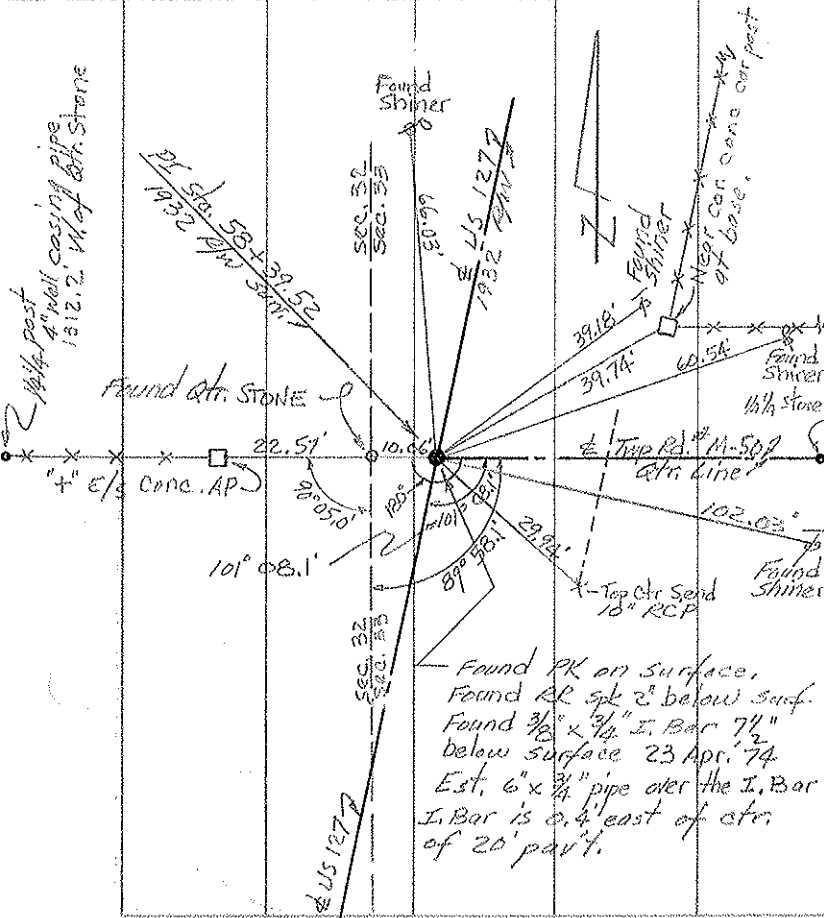 1/4 1/4 post
4" Well casing pipe
1312.2' W. of Qtr. Stone
PI Sta. 58+39.52
1932 R/W Surv.
Sec. 32
Sec. 33
Found
Shiner
66.03'
℄ US 127
1932 R/W
N
Found
Shiner
Near Cor. conc cor post
at base.
39.18'
39.74'
60.54'
Found
Shiner
1/4 1/4 stone
Found Qtr. STONE
22.57'
10.66'
℄ Twp Rd. M-50
Qtr. Line
"+" E/S Conc. AP
90°05.0'
180°
101°08.1'
101° 08.1'
89° 58.1'
29.94'
102.03'
Found
Shiner
Top Ctr. S end
10" RCP
Sec. 32
Sec. 33
Found PK on surface.
Found RR spk 2" below surf.
Found 3/8" x 3/4" I. Bar 7 1/2"
below surface 23 Apr. '74
Est. 6" x 3/4" pipe over the I. Bar
I. Bar is 0.4' east of ctr.
of 20' pav't.
℄ US 127